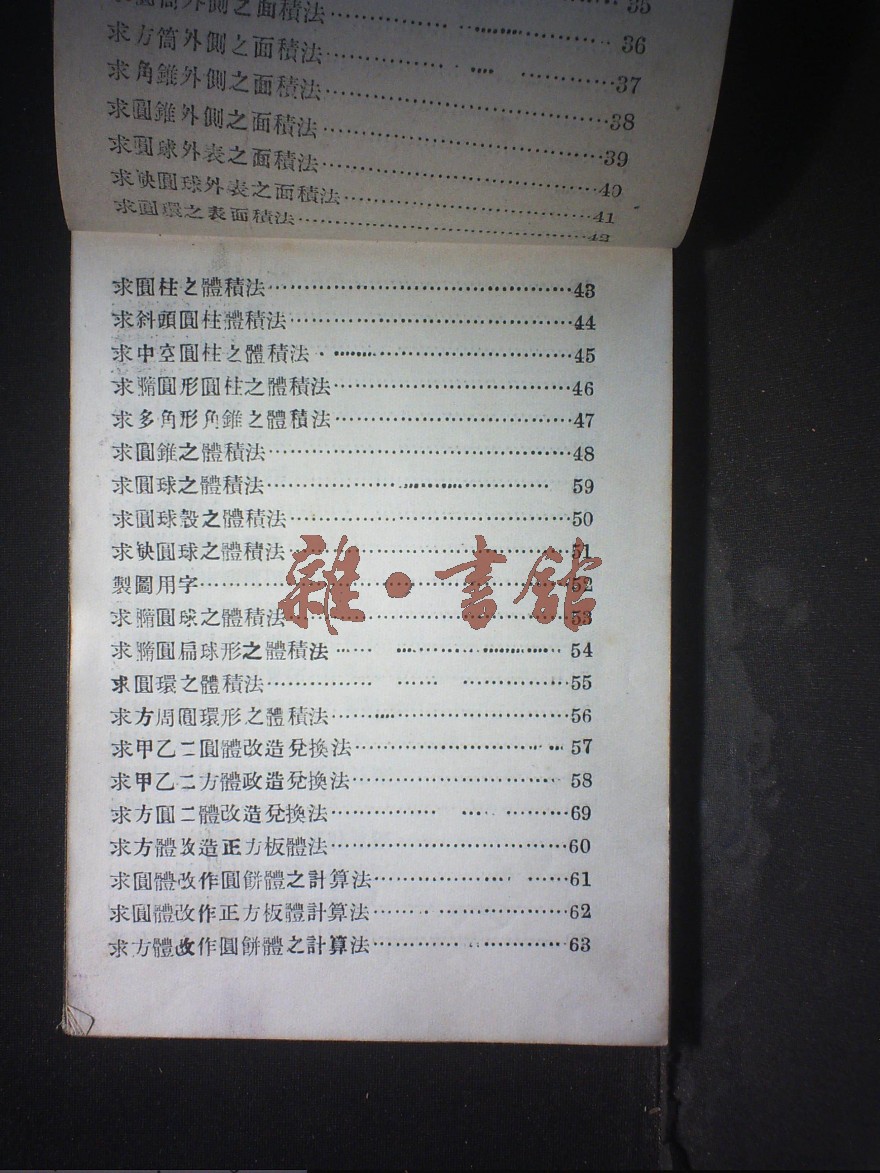 筒外側之面積法 35
求方筒外側之面積法 36
求角錐外側之面積法 37
求圓錐外側之面積法 38
求圓球外表之面積法 39
求缺圓球外表之面積法 40
求圓環之表面積法 41
42
求圓柱之體積法 43
求斜頭圓柱體積法 44
求中空圓柱之體積法 45
求橢圓形圓柱之體積法 46
求多角形角錐之體積法 47
求圓錐之體積法 48
求圓球之體積法 59
求圓球殼之體積法 50
求缺圓球之體積法 51
製圖用字 52
求橢圓球之體積法 53
求橢圓扁球形之體積法 54
求圓環之體積法 55
求方周圓環形之體積法 56
求甲乙二圓體改造兌換法 57
求甲乙二方體政造兌換法 58
求方圓二體改造兌換法 69
求方體改造正方板體法 60
求圓體改作圓餅體之計算法 61
求圓體改作正方板體計算法 62
求方體改作圓餅體之計算法 63
雜·書館